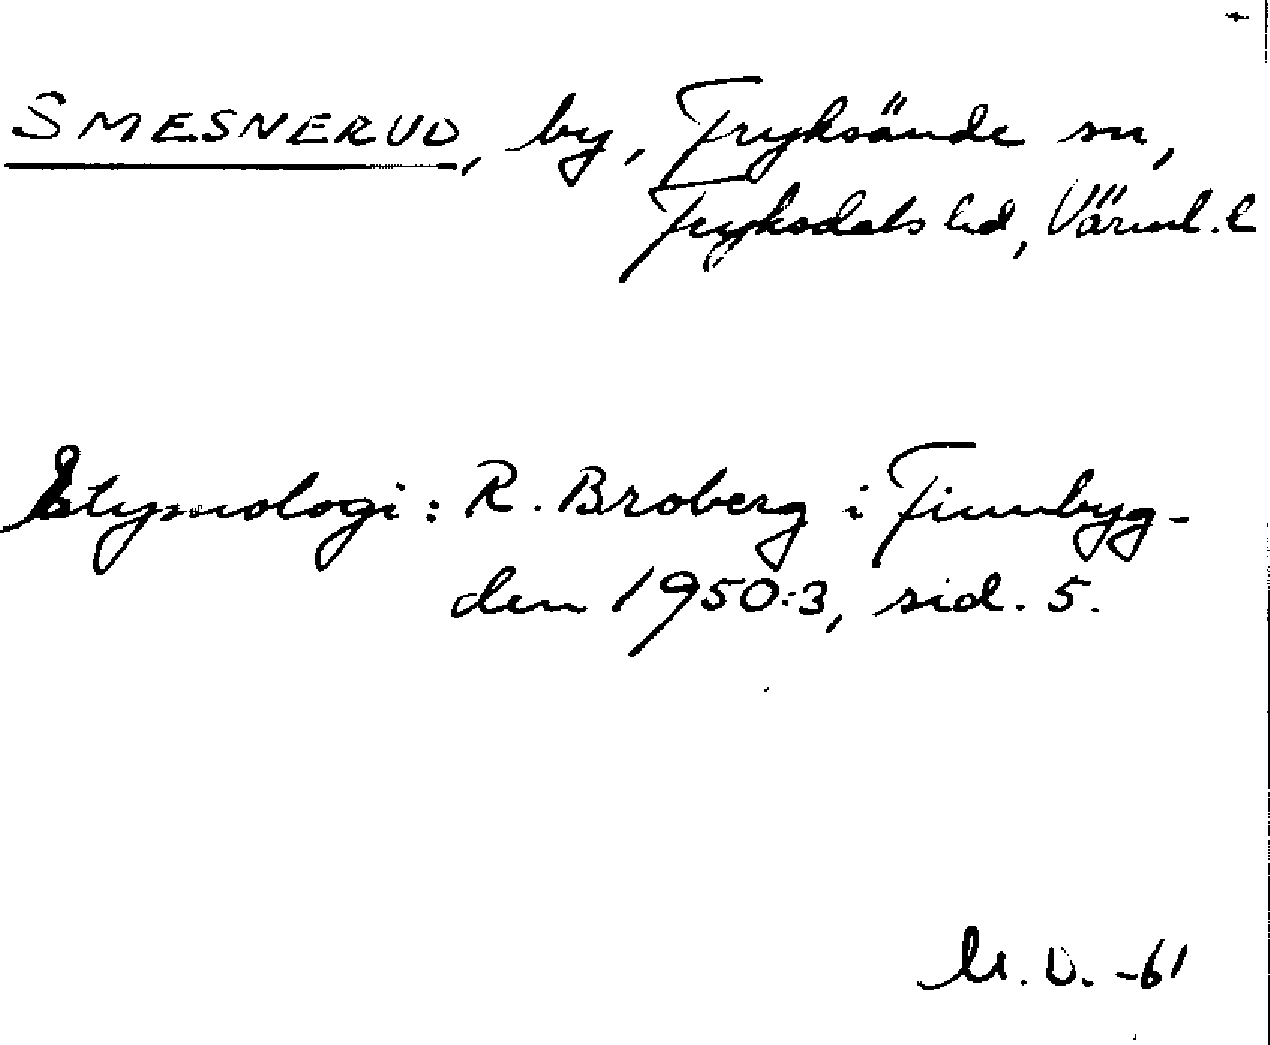 SMESNERUD, by, Fryksände sn,
Fryksdals hd, Värml. l
Etymologi: R. Broberg i Finnbyg-
den 1950:3, sid. 5.
M. D. -61